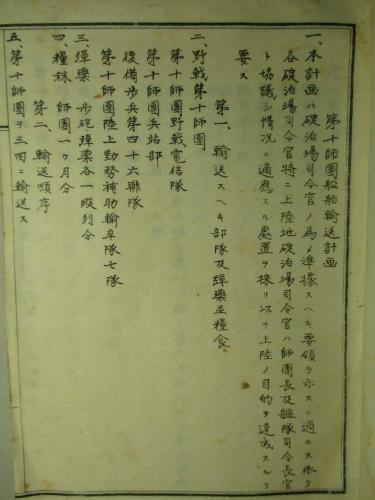 第十師團舩舶輸送計画
一、本計画ハ碇泊場司令官ノ為メ準據スヘキ要領ヲ示スニ過キス依テ
各碇泊場司令官特ニ上陸地碇泊場司令官ハ師團長及艦隊司令長官
ト協議シ情況ニ適應スル處置ヲ採リ以テ上陸ノ目的ヲ達成スルヲ
要ス
第一、輸送スヘキ部隊及彈藥並糧食
二、野戰第十師團
第十師團野戰電信隊
第十師團兵站部
後備步兵第四十六聯隊
第十師團陸上勤務補助輸卒隊七隊
三、彈藥 步砲彈藥各一縱列分
四、糧秣 師團一ケ月分
第二、輸送順序
五、第十師團ヲ三回ニ輸送ス